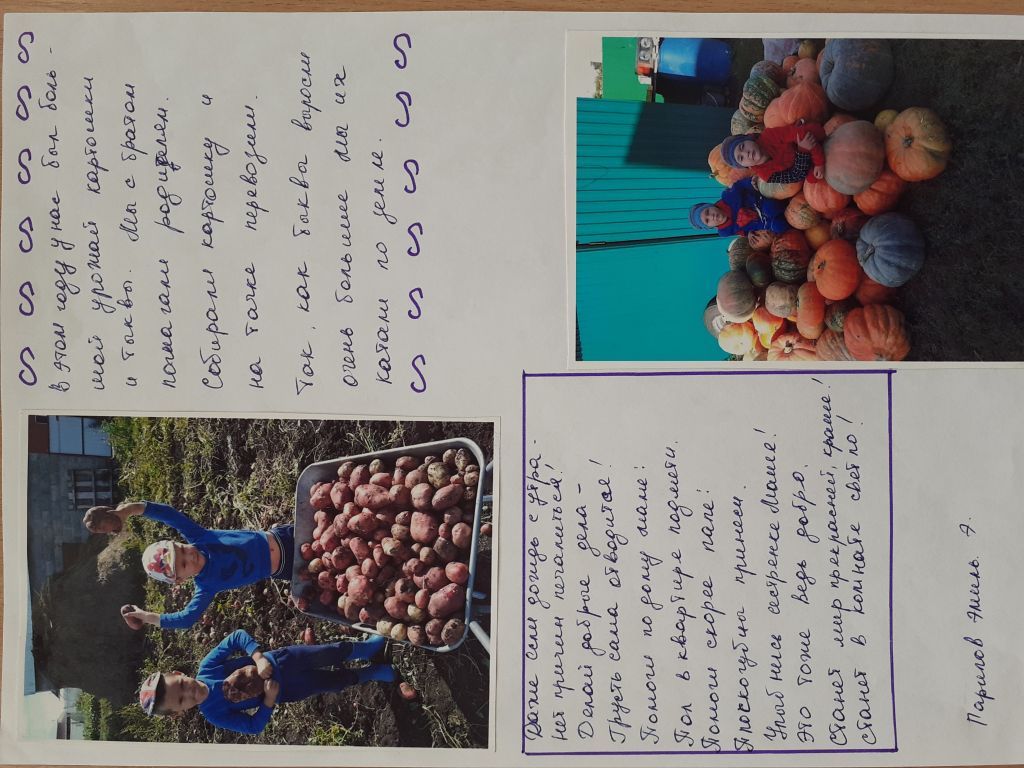 в этом году у нас был боль-
шой урожай картошки
и тыквы. Мы с братом
помагали родителям.
Собирали картошку и
на тачке перевозили.
Так, как тыква выросли
очень большие мы их
катали по земле.
Даже если дождь с утра -
нет причин печалиться!
Делай добрые дела -
Грусть сама отвалится!
Помоги по дому маме:
Пол в квартире подмети.
Помоги скорее папе:
Плоскогубцы принеси.
Улыбнись сестренке Маше!
Это тоже ведь добро.
Станет мир прекрасней, краше!
Станет в комнате светло!
Парилов Эмиль. 7.